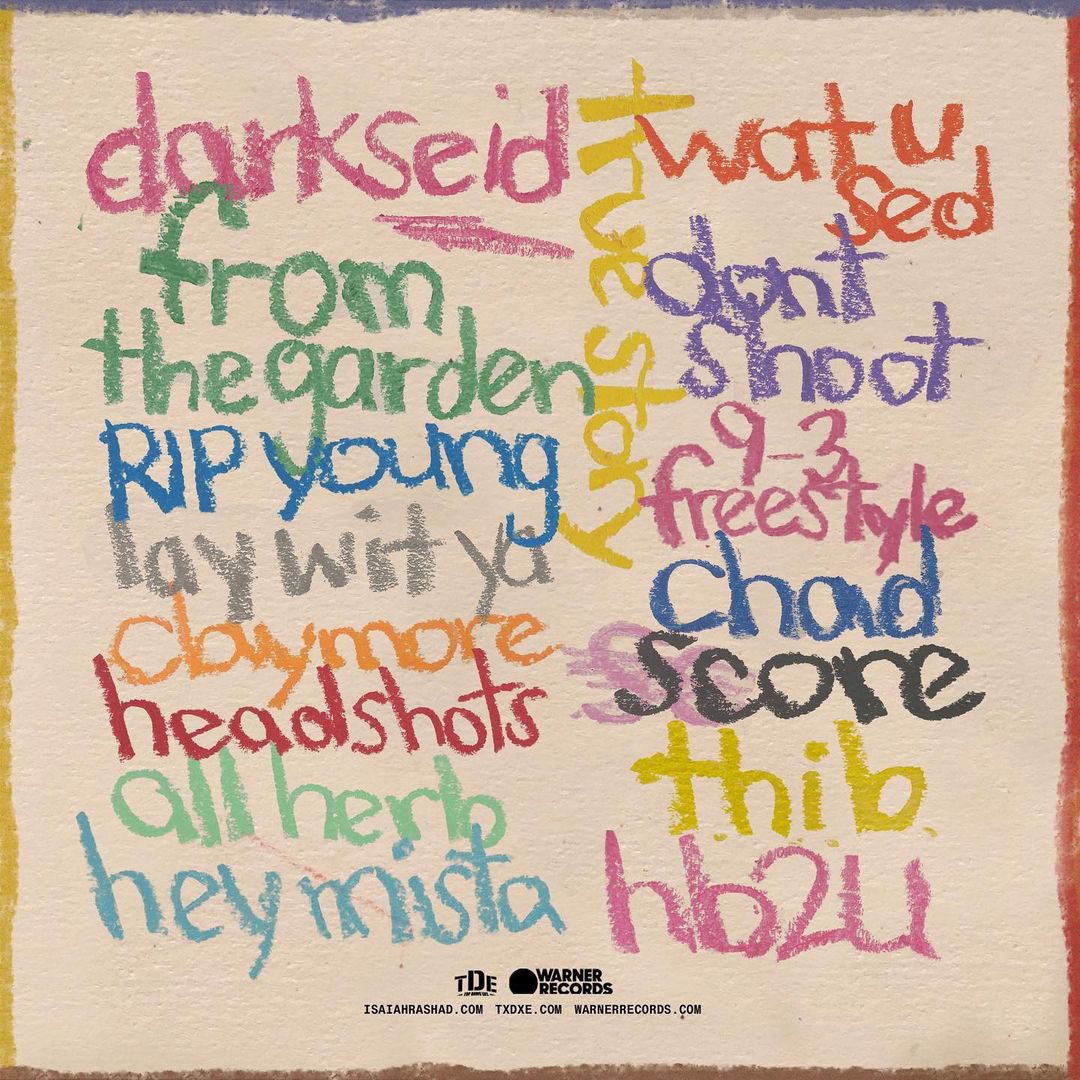 darkseid
from
the garden
RIP young
lay wit ya
claymore
headshots
all herb
hey mista
true story
wat u
sed
dont
shoot
9-3
freestyle
chad
score
thib
hb2u
TDE
TOP DAWG ENT.
WARNER
RECORDS
ISAIAHRASHAD.COM TXDXE.COM WARNERRECORDS.COM